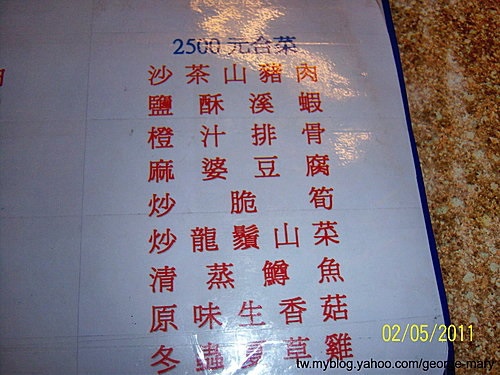 2500 元合菜
沙茶山豬肉
鹽酥溪蝦
橙汁排骨
麻婆豆腐
炒脆筍
炒龍鬚山菜
清蒸鱒魚
原味生香菇
冬蟲夏草雞
肉
02/05/2011
tw.myblog.yahoo.com/george-mary